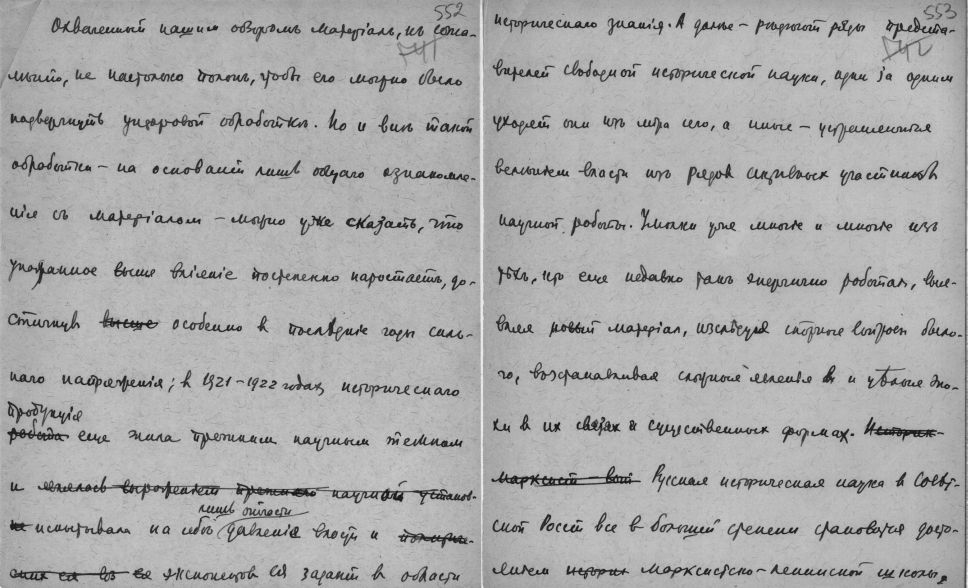 552
741
Охваченный нашим обзоромъ матеріалъ, къ сожа-
лѣнію, не настолько полонъ, чтобы его можно было
подвергнуть цифровой обработкѣ. Но и внѣ такой
обработки – на основаніи лишь общаго ознакомле-
нія съ матеріаломъ – можно уже сказать, что
указанное выше вліяніе постепенно наростаетъ, до-
стигнувъ выше особенно в послѣдніе годы силь-
наго напряженія; в 1921–1922 годах историческаго
продукція
работа еще жила прежним научным темпом
и являлась выраженіем прежняго научной установ-
лишь отчасти
испытывала на себѣ давленіе власти и
экспонентов ея заданій в области
553
742
историческаго знанія. А далѣе – рѣдѣют ряды предста-
вителей свободной исторической науки, один за одним
уходят они изъ міра сего, а иные – устраняются
велѣніем власти изъ рядов активных участников
научной работы. Умолкли уже многіе и многіе изъ
тѣхъ, кто еще недавно так энергично работал, выя-
вляя новый матеріал, изслѣдуя спорные вопросы было-
го, возстанавливая сложные явленія и цѣлые эпо-
хи в их связях и существенных формах. Историк-
марксист Русская историческая наука в Совѣт-
ской Россіи все в большей степени становится досто-
яніем истори марксистско-ленинской школы,